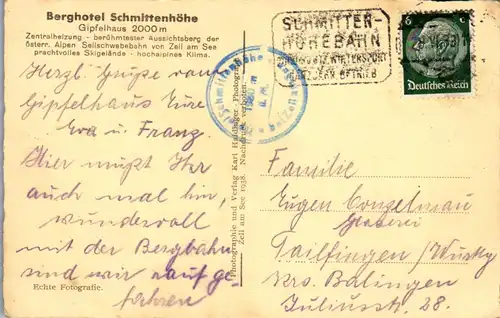 Berghotel Schmittenhöhe
Gipfelhaus 2000 m
Zentralheizung - berühmtester Aussichtsberg der
österr. Alpen Seilschwebebahn von Zell am See
prachtvolles Skigelände - hochalpines Klima.
Herzl. Grüße vom
Gipfelhaus Eure
Eva u. Franz.
Hier müßt Ihr
auch mal hin,
wundervoll
mit der Bergbahn
sind wir rauf ge-
fahren
Echte Fotografie.
Photographie und Verlag Karl Haidinger, Photograph
Zell am See 1938. Nachdruck verboten
Schmittenhöhe
SCHMITTEN-
HÖHEBAHN
BETRIEB
6 6
Deutsches Reich
Familie
Eugen Conzelmau
Glaserei
Tailfingen / Wttbg
Krs. Balingen
Juliusstr. 28.